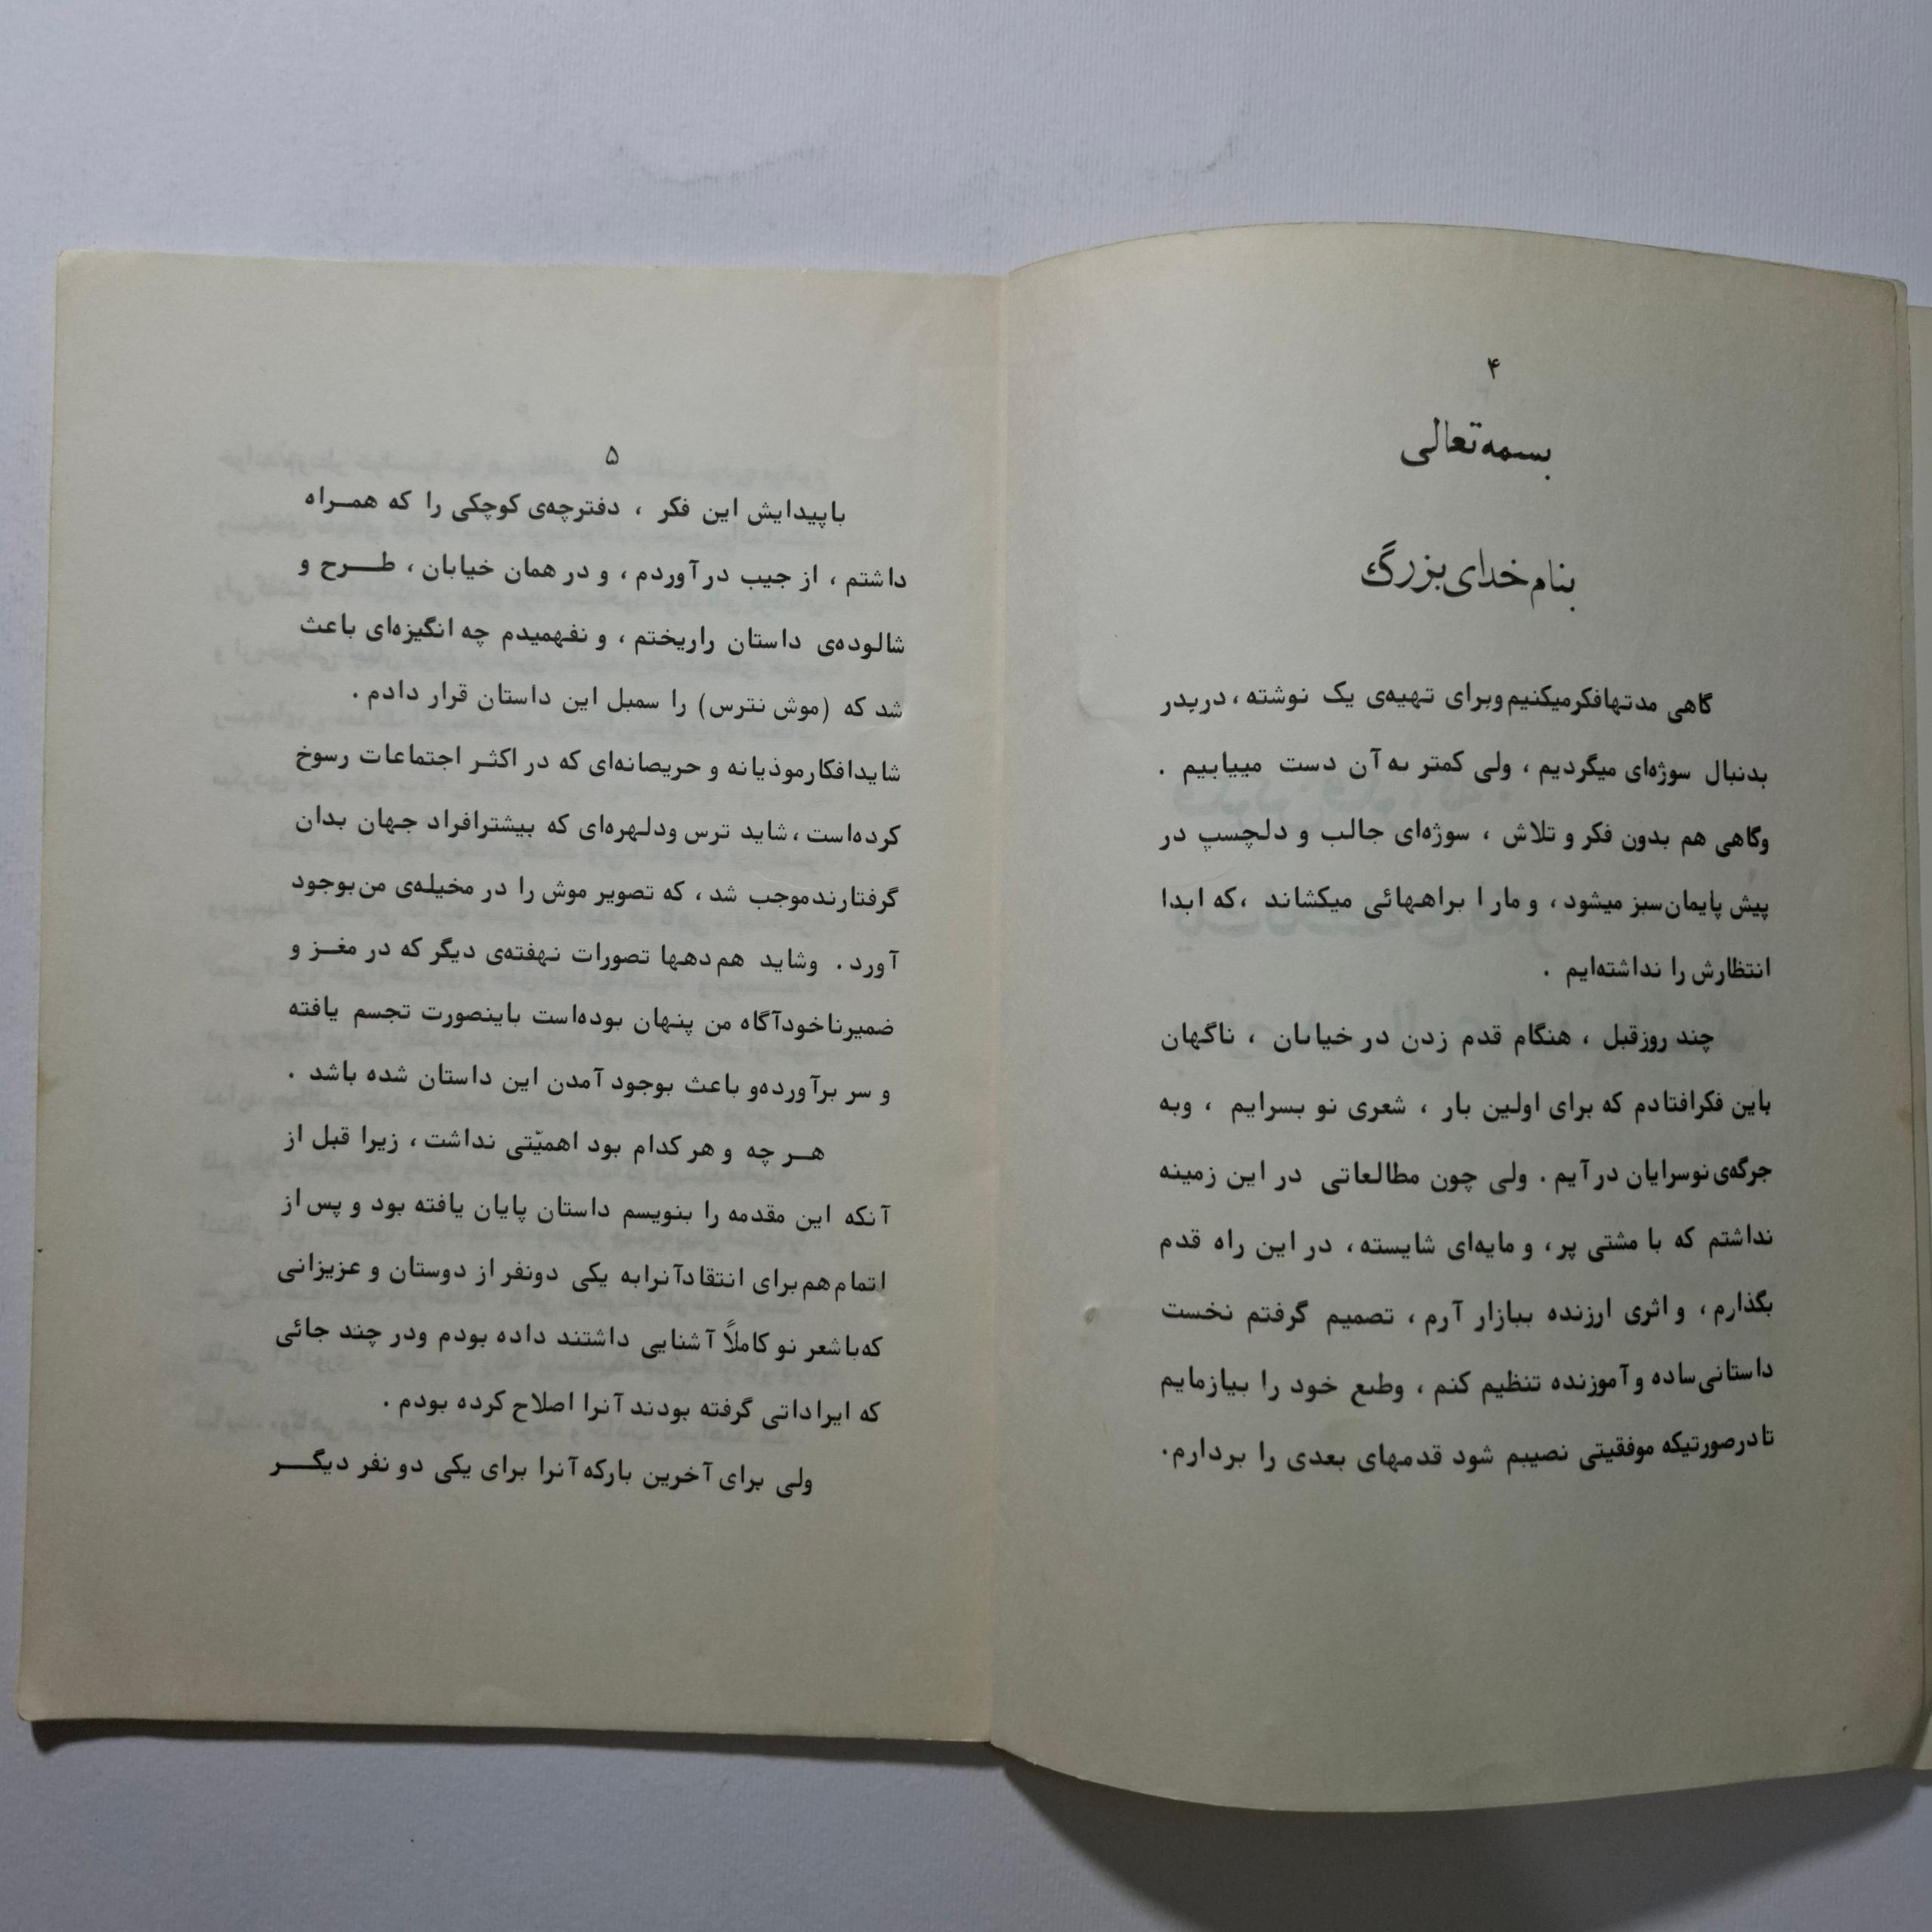 ۴
بسمه تعالی
بنام خدای بزرگ
گاهی مدتهافکرمیکنیم وبرای تهیه‌ی یک نوشته ، دربدر
بدنبال سوژه‌ای میگردیم ، ولی کمتر به آن دست مییابیم .
وگاهی هم بدون فکر و تلاش ، سوژه‌ای جالب و دلچسپ در
پیش پایمان سبز میشود ، و مار ا براههائی میکشاند ،که ابدا
انتظارش را نداشته‌ایم .
چند روزقبل ، هنگام قدم زدن در خیابان ، ناگهان
باین فکرافتادم که برای اولین بار ، شعری نو بسرایم ، وبه
جرگه‌ی نوسرایان در آیم . ولی چون مطالعاتی در این زمینه
نداشتم که با مشتی پر ، و مایه‌ای شایسته ، در این راه قدم
بگذارم ، و اثری ارزنده ببازار آرم ، تصمیم گرفتم نخست
داستانی ساده و آموزنده تنظیم کنم ، وطبع خود را بیازمایم
تادرصورتیکه موفقیتی نصیبم شود قدمهای بعدی را بردارم.
۵
باپیدایش این فکر ، دفترچه‌ی کوچکی را که همـراه
داشتم ، از جیب در آوردم ، و در همان خیابان ، طـــرح و
شالوده‌ی داستان راریختم ، و نفهمیدم چه انگیزه‌ای باعث
شد که (موش نترس) را سمبل این داستان قرار دادم .
شایدافکارموذیانه و حریصانه‌ای که در اکثـر اجتماعات رسوخ
کرده‌است ، شاید ترس ودلهره‌ای که بیشترافراد جهان بدان
گرفتارندموجب شد ، که تصویر موش را در مخیله‌ی من بوجود
آورد . وشاید هم دهها تصورات نهفته‌ی دیگر که در مغـز و
ضمیرناخودآگاه من پنهان بوده‌است باینصورت تجسم یافته
و سر برآورده‌و باعث بوجود آمدن این داستان شده باشد .
هــر چه و هر کدام بود اهمیّتی نداشت ، زیرا قبل از
آنکه این مقدمه را بنویسم داستان پایان یافته بود و پس از
اتمام هم برای انتقادآنرابه یکی دونفر از دوستان و عزیزانی
که‌باشعر نو کاملاً آشنایی داشتند داده بودم ودر چند جائی
که ایراداتی گرفته بودند آنرا اصلاح کرده بودم .
ولی برای آخرین بارکه آنرا برای یکی دو نفر دیگــــر